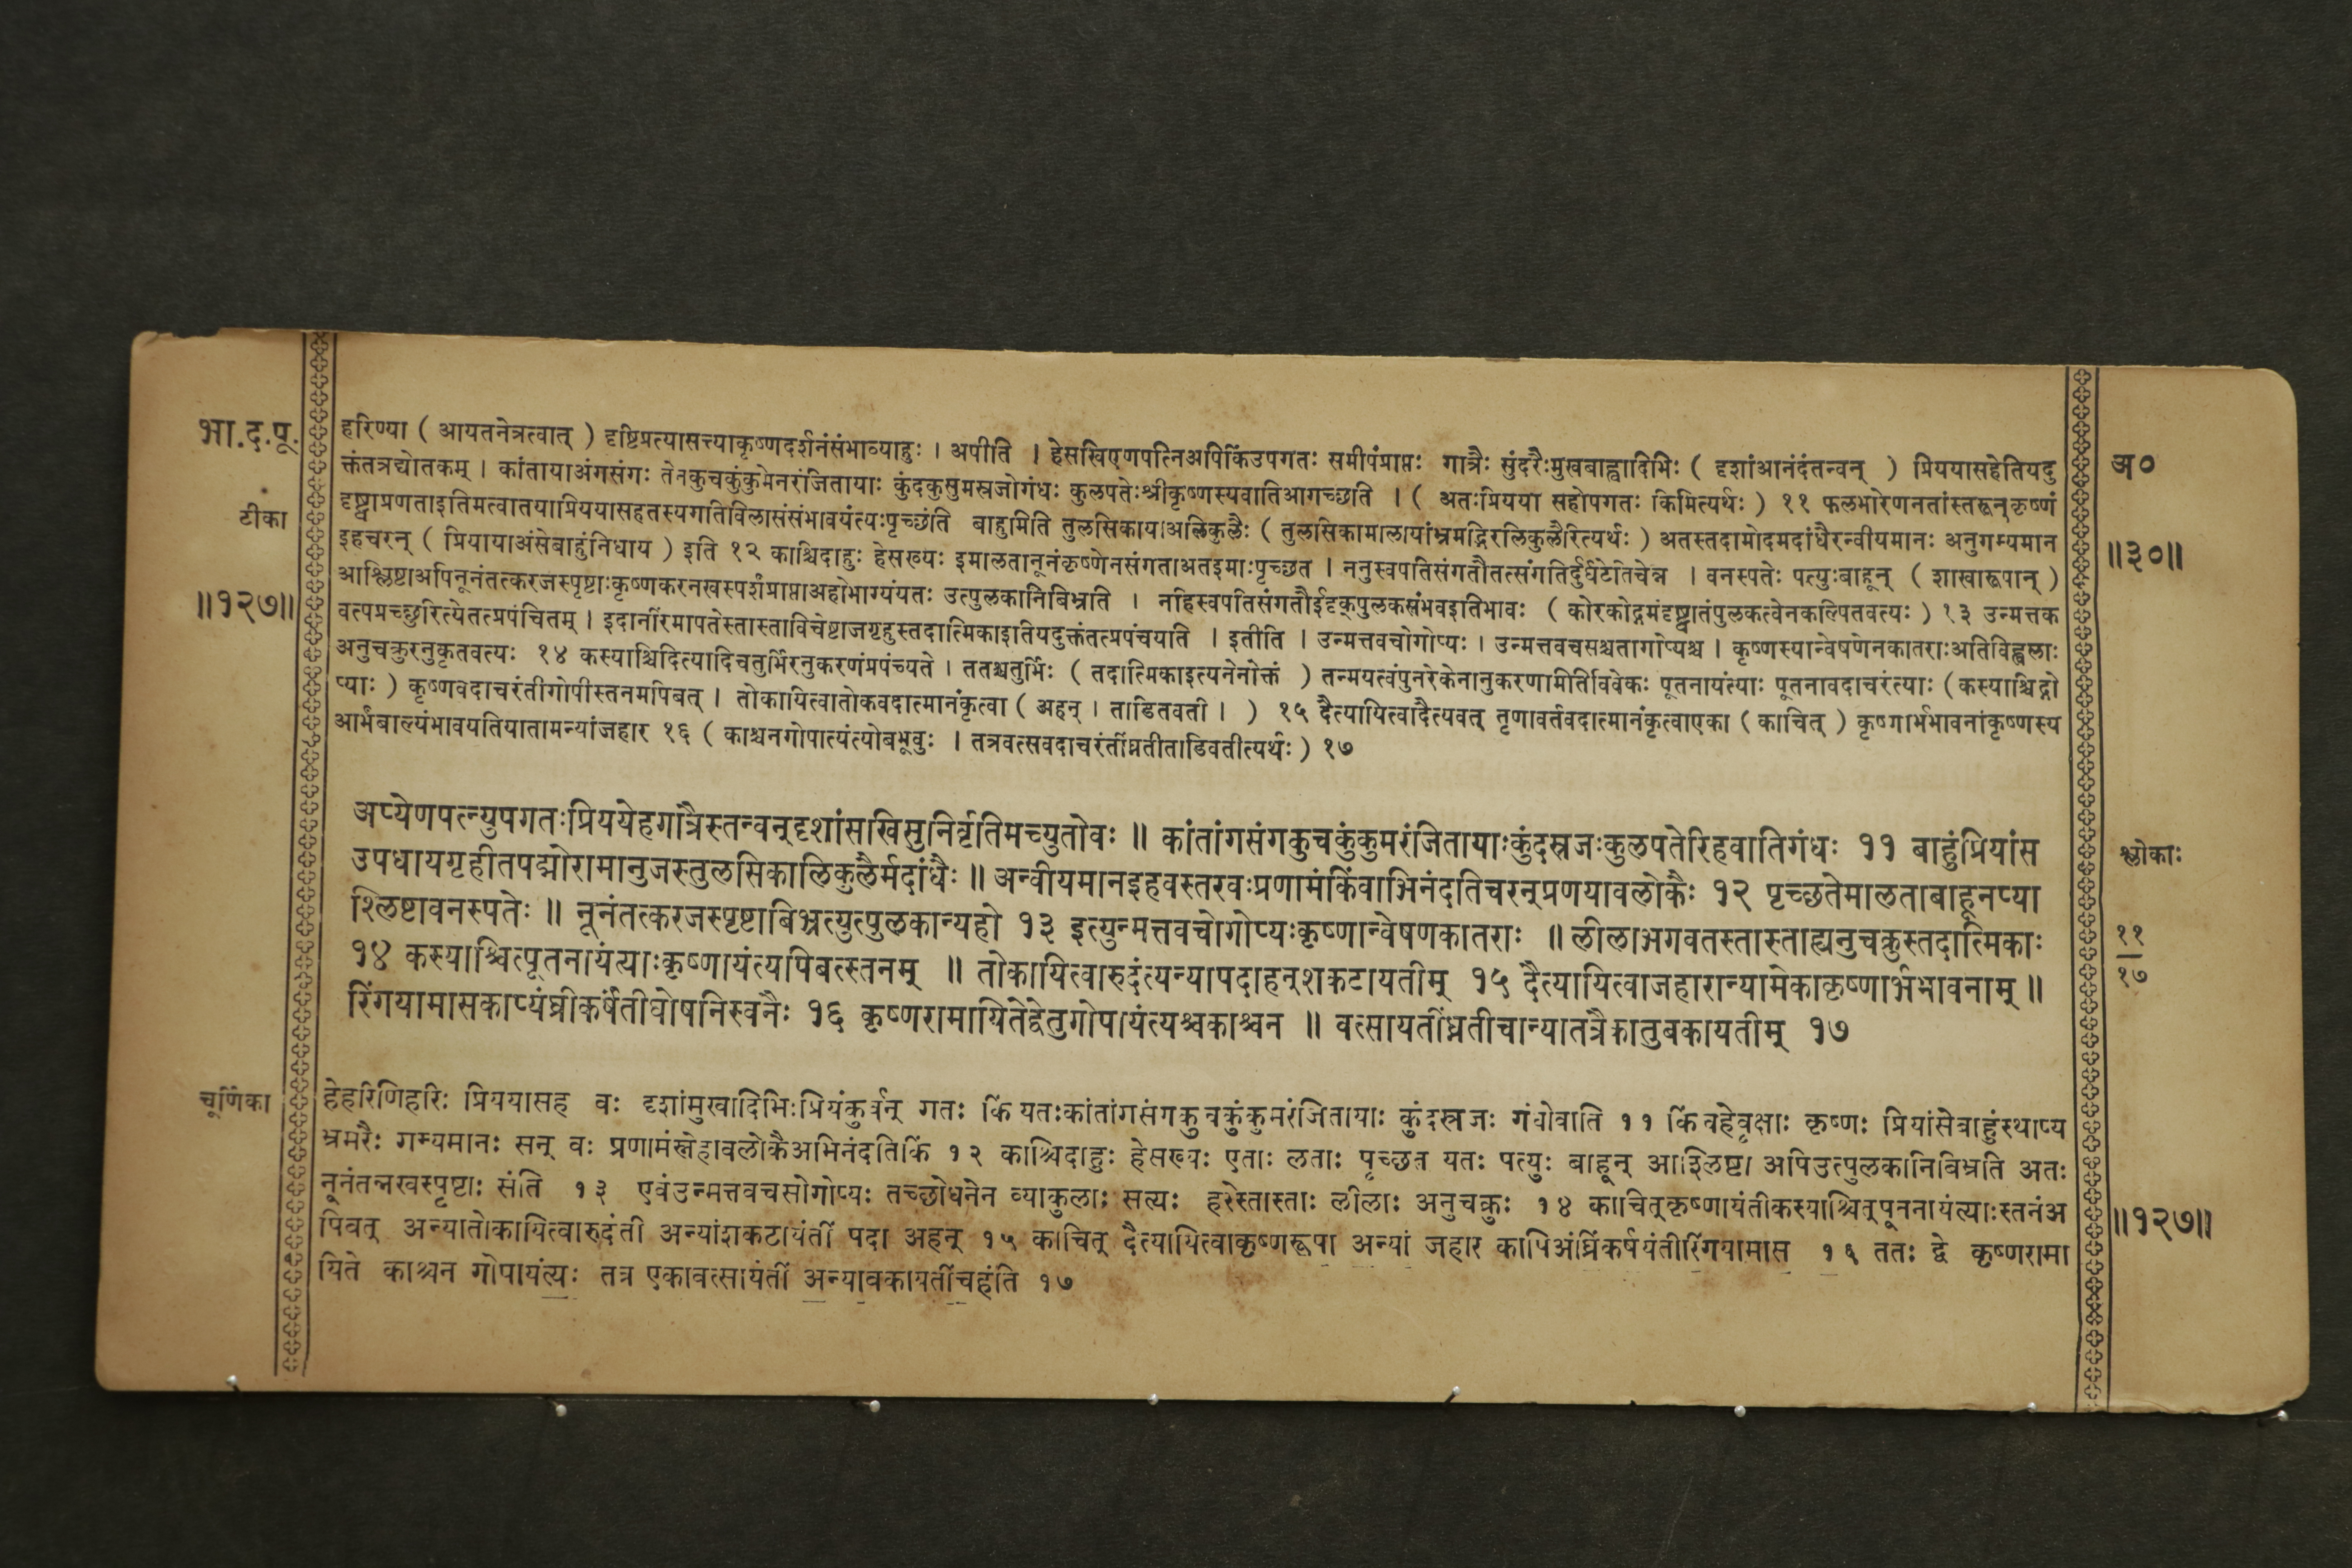 भा.द.पू.
टीका
॥१२७॥
हरिण्या ( आयतनेत्रत्वात् ) दृष्टिप्रत्यासत्त्याकृष्णदर्शनंसंभाव्याहुः । अपीति । हेसखिएणपत्निअपिकिंउपगतः समीपंप्राप्तः गात्रैः सुंदरैःमुखबाह्वादिभिः ( दृशांआनंदंतन्वन् ) प्रिययासहेतियदु
क्तंतत्रद्योतकम् । कांतायाअंगसंगः तेनकुचकुंकुमेनरंजितायाः कुंदकुसुमस्रजोगंधः कुलपतेःश्रीकृष्णस्यवातिआगच्छति । ( अतःप्रियया सहोपगतः किमित्यर्थः ) ११ फलभारेणनतांस्तरून्कृष्णं
दृष्ट्वाप्रणताइतिमत्वातयाप्रिययासहतस्यगतिविलासंसंभावयंत्यःपृच्छंति बाहुमिति तुलसिकायाअलिकुलैः ( तुलसिकामालायांभ्रमद्भिरलिकुलैरित्यर्थः ) अतस्तदामोदमदांधैरन्वीयमानः अनुगम्यमान
इहचरन् ( प्रियायाअंसेबाहुंनिधाय ) इति १२ काश्चिदाहुः हेसख्यः इमालतानूनंकृष्णेनसंगताअतइमाःपृच्छत । ननुस्वपतिसंगतौतत्संगतिर्दुर्घटेतिचेन्न । वनस्पतेः पत्युःबाहून् ( शाखारूपान् )
आश्लिष्टाअपिनूनंतत्करजस्पृष्टाःकृष्णकरनखस्पर्शंप्राप्ताअहोभाग्यंयतः उत्पुलकानिबिभ्रति । नहिस्वपतिसंगतौईदृक्पुलकसंभवइतिभावः ( कोरकोद्गमंदृष्ट्वातंपुलकत्वेनकल्पितवत्यः ) १३ उन्मत्तक
वत्पप्रच्छुरित्येतत्प्रपंचितम् । इदानींरमापतेस्तास्ताविचेष्टाजगृहुस्तदात्मिकाइतियदुक्तंतत्प्रपंचयति । इतीति । उन्मत्तवचोगोप्यः । उन्मत्तवचसश्चतागोप्यश्च । कृष्णस्यान्वेषणेनकातराःअतिविह्वलाः
अनुचक्रुरनुकृतवत्यः १४ कस्याश्चिदित्यादिचतुर्भिरनुकरणंप्रपंच्यते । ततश्चतुर्भिः ( तदात्मिकाइत्यनेनोक्तं ) तन्मयत्वंपुनरेकेनानुकरणामितिविवेकः पूतनायंत्याः पूतनावदाचरंत्याः (कस्याश्चिद्गो
प्याः ) कृष्णवदाचरंतीगोपीस्तनमपिबत् । तोकायित्वातोकवदात्मानंकृत्वा ( अहन् । ताडितवती । ) १५ दैत्यायित्वादैत्यवत् तृणावर्तवदात्मानंकृत्वाएका ( काचित् ) कृष्णार्भभावनांकृष्णस्य
आर्भंबाल्यंभावयतियातामन्यांजहार १६ ( काश्चनगोपात्यंत्योबभूवुः । तत्रवत्सवदाचरंतींघ्नतीताडिवतीत्यर्थः ) १७
अप्येणपत्न्युपगतःप्रिययेहगात्रैस्तन्वन्दृशांसखिसुनिर्वृतिमच्युतोवः ॥ कांतांगसंगकुचकुंकुमरंजितायाःकुंदस्रजःकुलपतेरिहवातिगंधः ११ बाहुंप्रियांस
उपधायगृहीतपद्मोरामानुजस्तुलसिकालिकुलैर्मदांधैः ॥ अन्वीयमानइहवस्तरवःप्रणामंकिंवाभिनंदतिचरन्प्रणयावलोकैः १२ पृच्छतेमालताबाहूनप्या
श्लिष्टावनस्पतेः ॥ नूनंतत्करजस्पृष्टाबिभ्रत्युत्पुलकान्यहो १३ इत्युन्मत्तवचोगोप्यःकृष्णान्वेषणकातराः ॥ लीलाभगवतस्तास्ताह्यनुचक्रुस्तदात्मिकाः
१४ कस्याश्चित्पूतनायंत्याःकृष्णायंत्यपिबत्स्तनम् ॥ तोकायित्वारुदंत्यन्यापदाहन्शकटायतीम् १५ दैत्यायित्वाजहारान्यामेकाकृष्णार्भभावनाम् ॥
रिंगयामासकाप्यंघ्रीकर्षंतीघोषनिस्वनैः १६ कृष्णरामायितेद्वेतुगोपायंत्यश्चकाश्चन ॥ वत्सायतींघ्नतीचान्यातत्रैकातुबकायतीम् १७
चूर्णिका
हेहरिणिहरिः प्रिययासह वः दृशांमुखादिभिःप्रियंकुर्वन् गतः किं यतःकांतांगसंगकुचकुंकुमरंजितायाः कुंदस्रजः गंधोवाति ११ किंवहेवृक्षाः कृष्णः प्रियांसेबाहुंस्थाप्य
भ्रमरैः गम्यमानः सन् वः प्रणामंस्नेहावलोकैअभिनंदतिकिं १२ काश्चिदाहुः हेसख्यः एताः लताः पृच्छत यतः पत्युः बाहून् आश्लिष्टा अपिउत्पुलकानिबिभ्रति अतः
नूनंतन्नखस्पृष्टाः संति १३ एवंउन्मत्तवचसोगोप्यः तच्छोधनेन व्याकुलाः सत्यः हरेस्तास्ताः लीलाः अनुचक्रुः १४ काचित्कृष्णायंतीकस्याश्चित्पूतनायंत्याःस्तनंअ
पिबत् अन्यातोकायित्वारुदंती अन्यांशकटायंतीं पदा अहन् १५ काचित् दैत्यायित्वाकृष्णरूपा अन्यां जहार कापिअंघ्रिंकर्षयंतीरिंगयामास १६ ततः द्वे कृष्णरामा
यिते काश्चन गोपायंत्यः तत्र एकावत्सायंतीं अन्याबकायतींचहंति १७
अ०
॥३०॥
श्लोकाः
११
१७
॥१२७॥